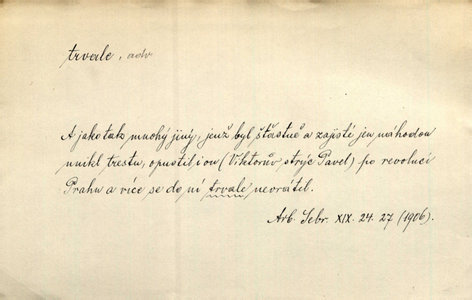 trvale, adv
A jako tak mnohý jiný, jenž byl šťastně a zajisté jen náhodou
unikl trestu, opustil i on (Viktorův strýc Pavel) po revoluci
Prahu a více se do ní trvale nevrátil.
Arb. Sebr. XIX. 24. 27 (1906).